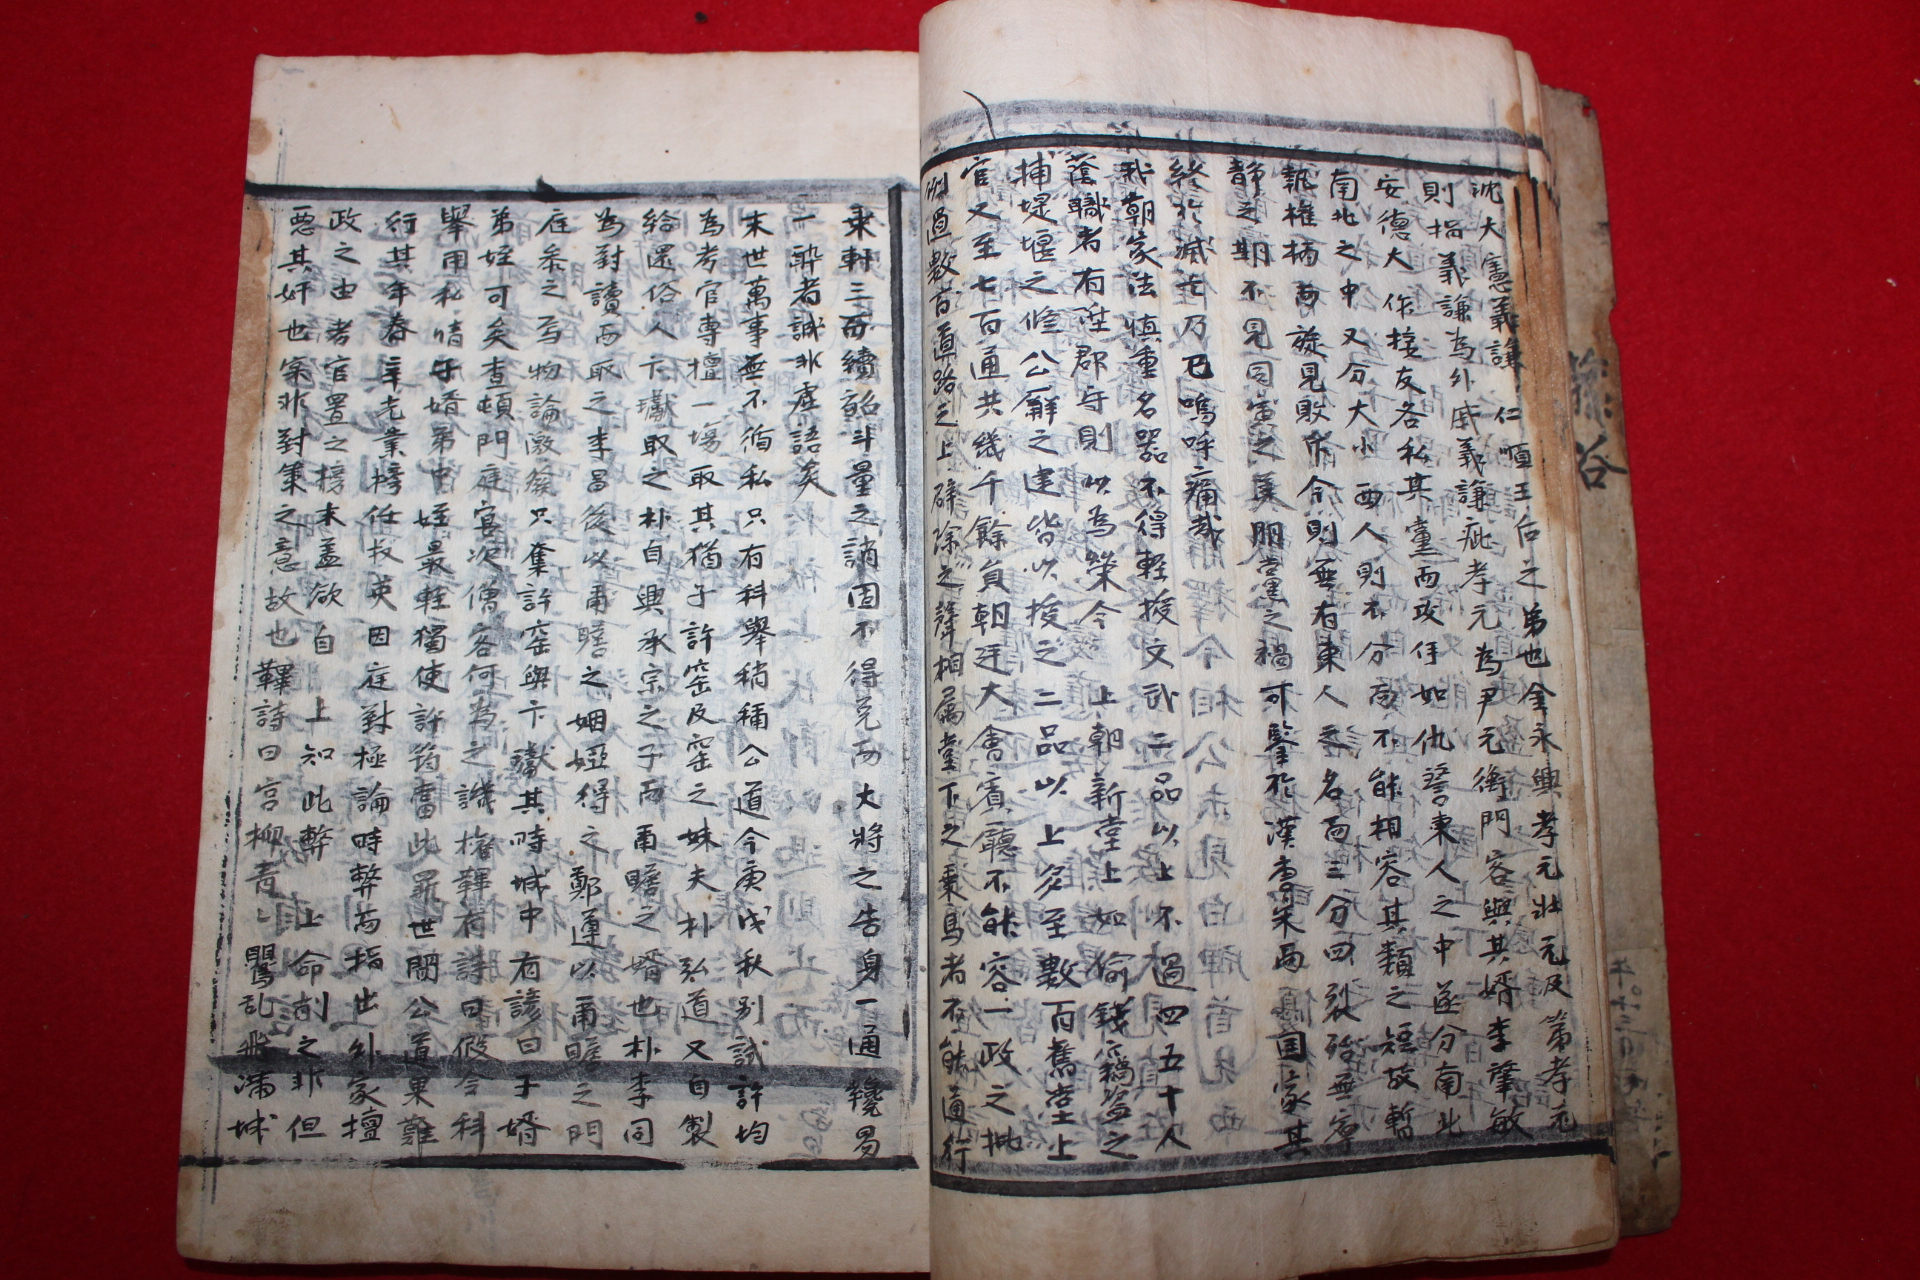 沈大憲義謙仁順王后之弟也金永興孝元壯元及第孝元
則指義謙為外戚義謙疵孝元為尹元衡門客與其婿李肇敏
安德大作接友各私其黨而攻伐如仇讐東人之中遂分南北
南北之中又分大小西人則不分而不能相容其類之短故暫
執權柄而旋見敗今則無有東人之名而三分四裂殆無寧
靜之期不見同寅之美朋黨之禍可鑒於漢唐宋而傷國家其
終於滅亡乃已嗚呼痛哉
我朝家法慎重名器不得輕授文武二品以上不過四五十人
蔭職者有陞郡守則以為榮今上朝新堂上如
捕堤堰之修公廨之建皆以授之二品以上多至數百舊堂上
官又至七百通共幾千餘員朝廷大會賓廳不能容一政之
數百道路之上辟除之聲相屬堂下之乘馬者不能通行
乘軒三百續貂斗量之誚固不得免而大將之告身一通纔易
一醉者誠非虛語矣
末世萬事無不徇私只有科舉稍稱公道今庚戌秋別試許均
為考官專擅一場取其猶子許窑及窑之妹夫朴弘道又自製
給還俗人卞獻取之朴自興承宗之子而甬瞻之婿也朴李同
為對讀而取之李昌後以甬瞻之姻婭得之鄭遵以甬瞻之門
庭黍之焉物論激發只奪許窑與卞獻其時城中有諺曰子婿
弟姪可矣查頓門庭宦次僧客何為之譏權鞸有詩曰假令科
舉用私情子婿弟中姪最輕獨使許筠當此罪世間公道果難
行其年春辛光業擢任叔英因庭對極論時弊而指出外家擅
政之由考官置之榜末盖欲自上知此弊上命削之非但
惡其奸也宗非對策之意故也鞸詩曰宮柳青青鸎乱飛滿城